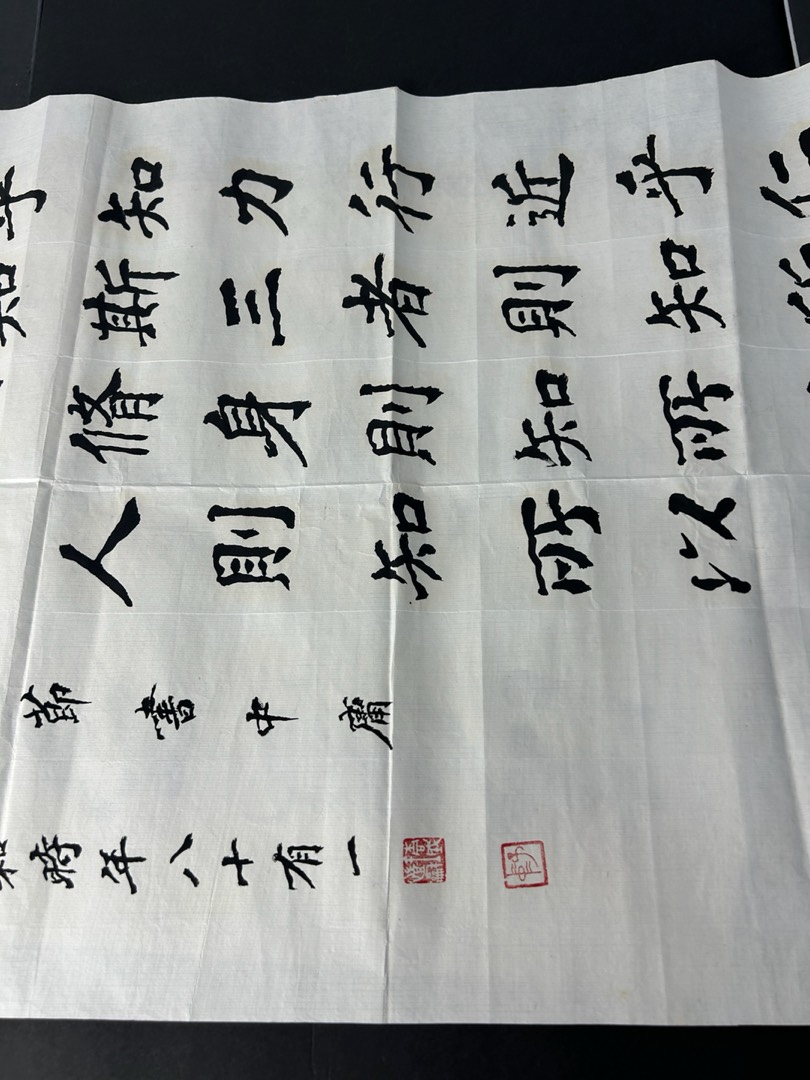 乎知力行近乎仁
知斯三者則知所
脩身則知所
人則知所以
節書中庸
時年八十有一